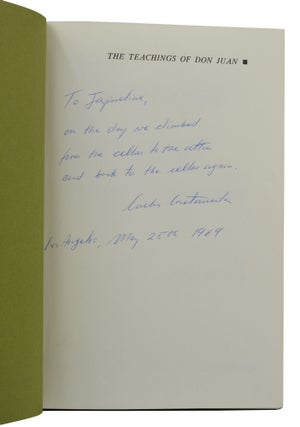 THE TEACHINGS OF DON JUAN ■
To Jaqueline,
on the day we climbed
from the cellar to the attic
and back to the cellar again.
Carlos Castaneda
Los Angeles, May 25th 1969